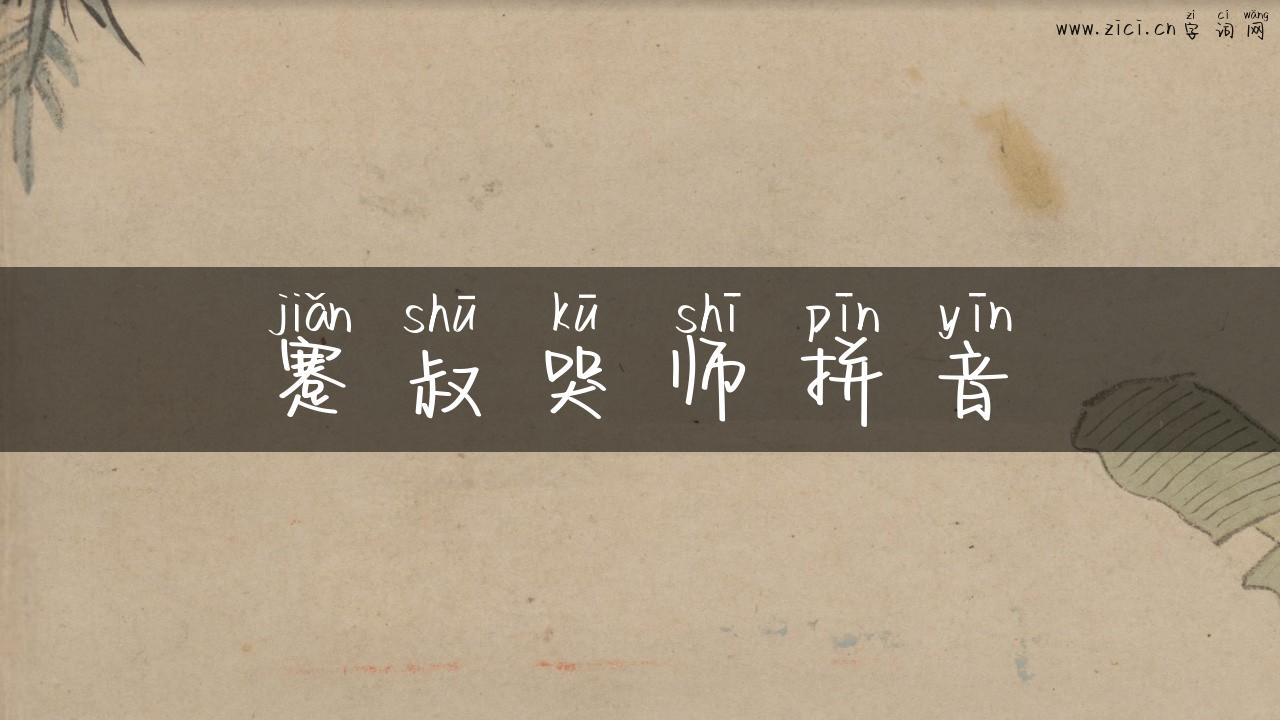 zì cí wǎng
www.zici.cn 字词网
jiǎn shū kū shī pīn yīn
蹇叔哭师拼音